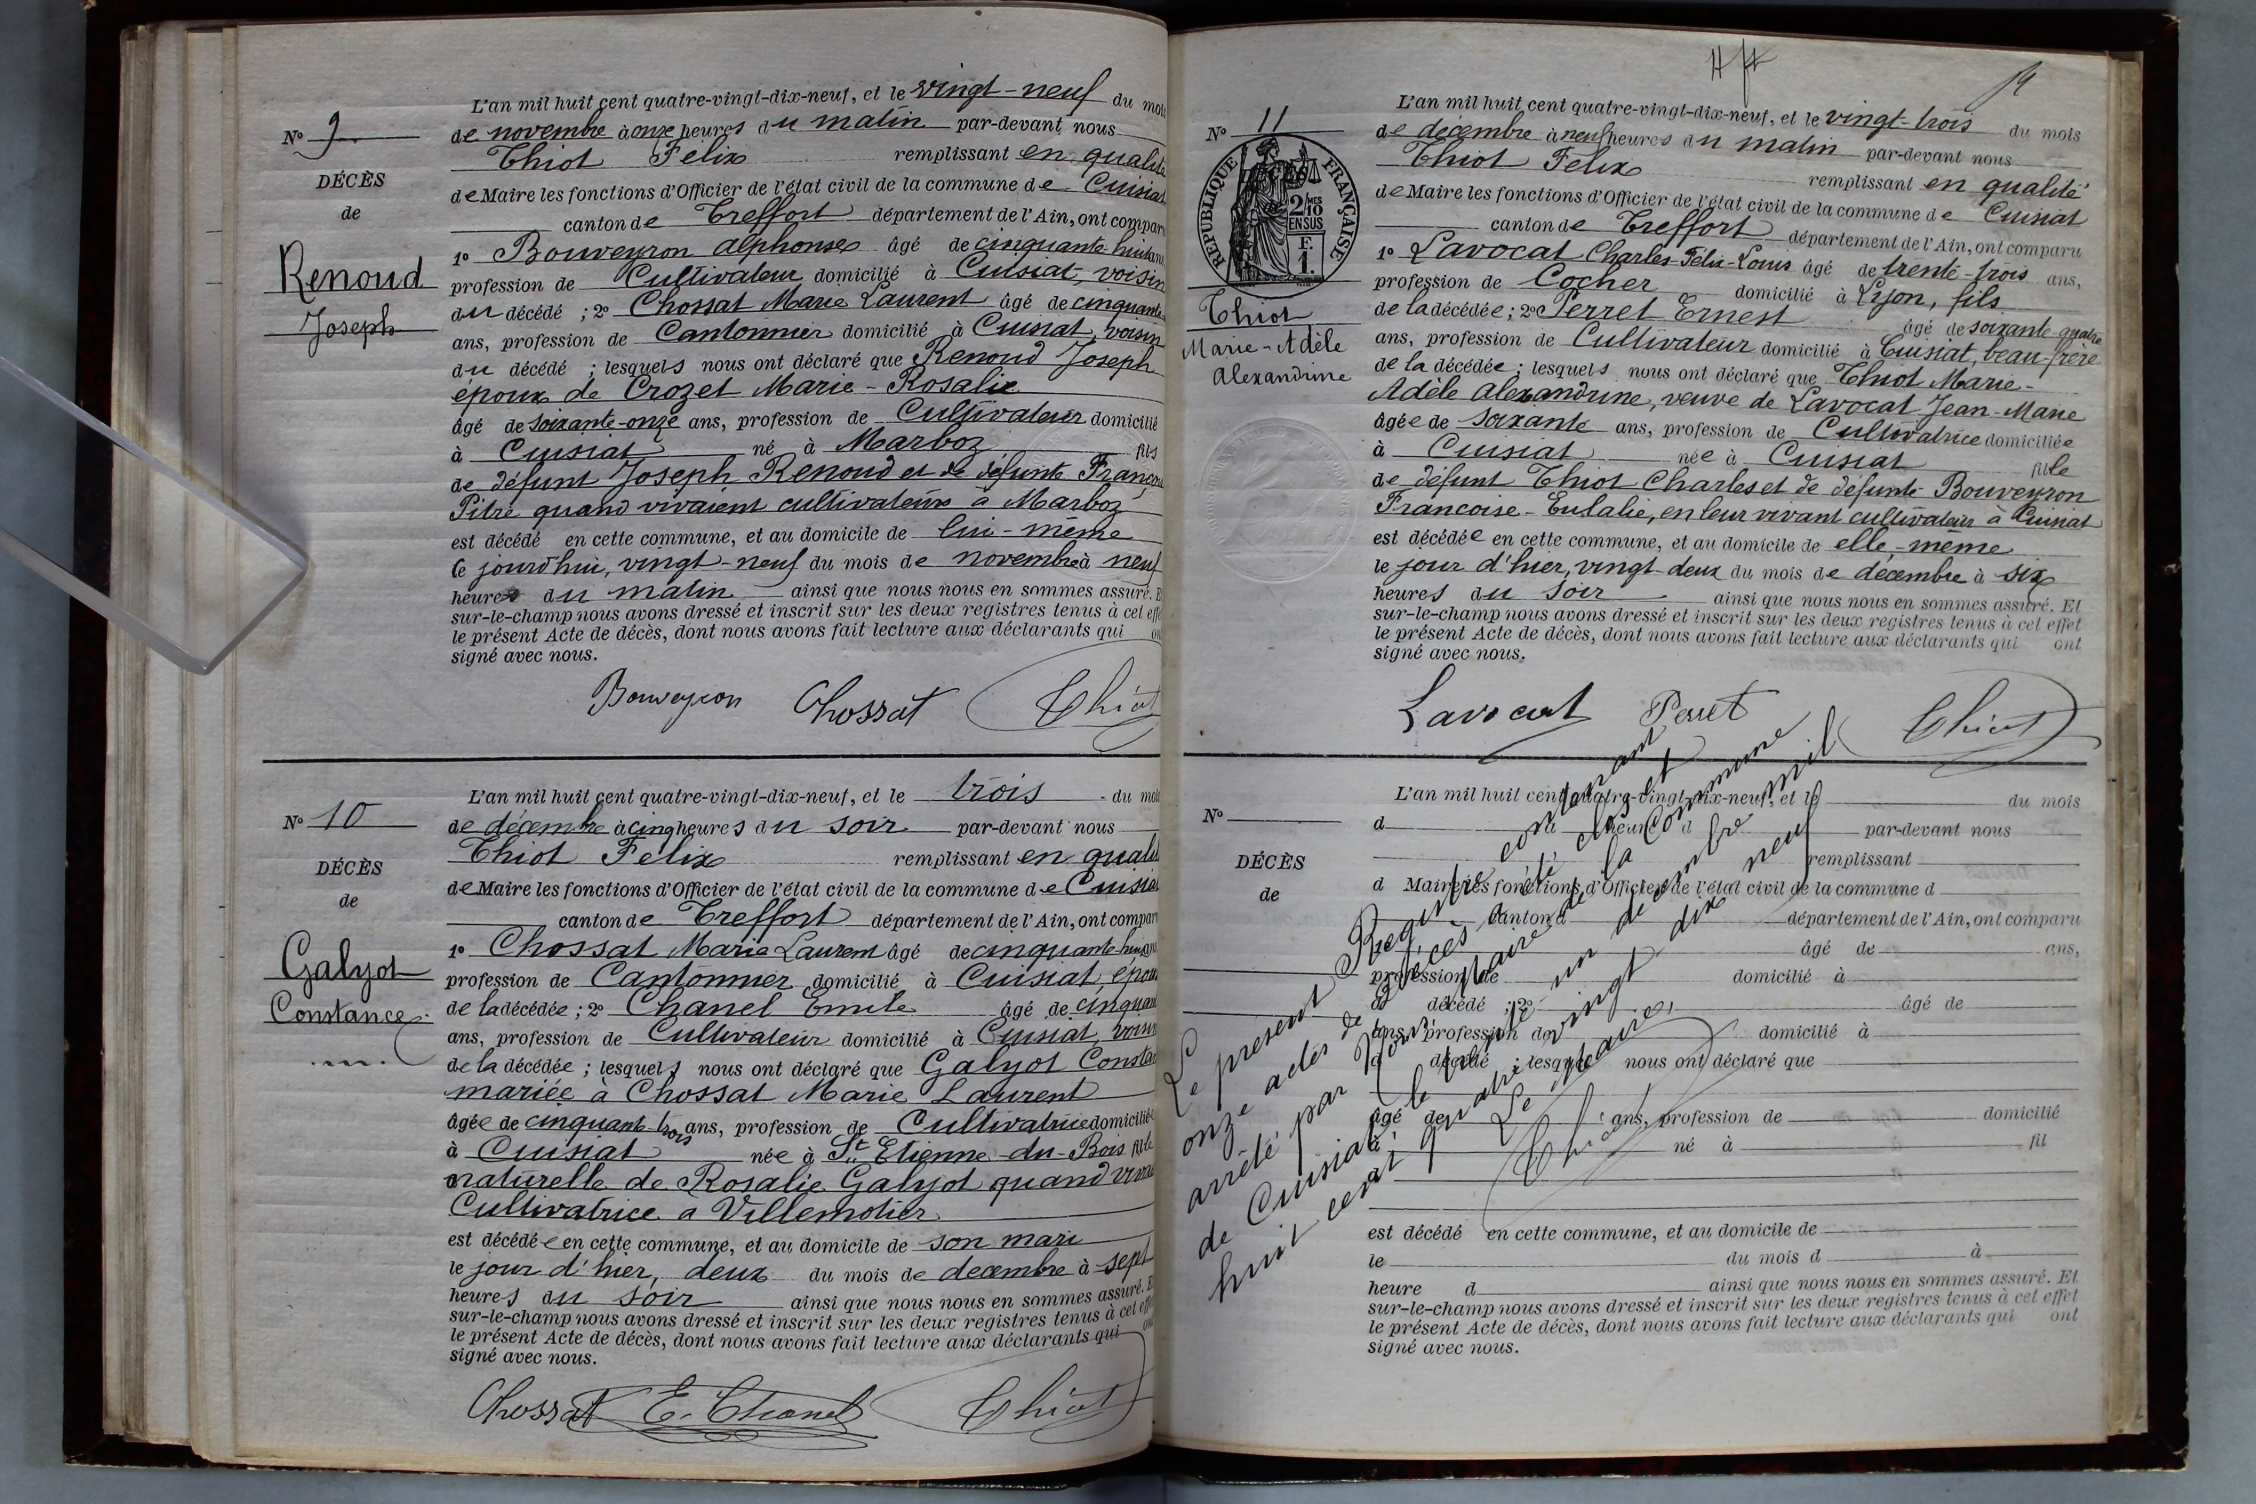 L'an mil huit cent quatre-vingt-dix-neuf, et le vingt-neuf du mois
No 9 de novembre à onze heures du matin par-devant nous
Thiot Felix remplissant en qualité
DÉCÈS
de Maire les fonctions d'Officier de l'état civil de la commune de Cuisiat
de
canton de Treffort département de l'Ain, ont comparu
1o Bouveyron alphonse âgé de cinquante huit ans
Renoud
profession de Cultivateur domicilié à Cuisiat, voisin
du décédé ; 2o Chossat Marie Laurent âgé de cinquante
Joseph
ans, profession de Cantonnier domicilié à Cuisiat, voisin
du décédé ; lesquels nous ont déclaré que Renoud Joseph
époux de Crozet Marie-Rosalie
âgé de soixante-onze ans, profession de Cultivateur domicilié
à Cuisiat né à Marboz fils
de défunt Joseph Renoud et de défunte
Pitre quand vivaient cultivateurs à Marboz
est décédé en cette commune, et au domicile de lui-même
Ce jourd'hui, vingt-neuf du mois de novembre à neuf
heures du matin ainsi que nous nous en sommes assuré. E
sur-le-champ nous avons dressé et inscrit sur les deux registres tenus à cet effe
le présent Acte de décès, dont nous avons fait lecture aux déclarants qui on
signé avec nous.
Bouveyron Chossat Thiot
L'an mil huit cent quatre-vingt-dix-neuf, et le trois du mois
No 10 de décembre à cinq heures du soir par-devant nous
Thiot Felix remplissant en qualit
DÉCÈS
de Maire les fonctions d'Officier de l'état civil de la commune de Cuisia
de
canton de Treffort département de l'Ain, ont comparu
1o Chossat Marie Laurent âgé de cinquante-huit ans
Galyot
profession de Cantonnier domicilié à Cuisiat, épou
de la décédée ; 2o Chanel Emile âgé de cinquan
Constance
ans, profession de Cultivateur domicilié à Cuisiat, voisin
de la décédée ; lesquels nous ont déclaré que Galyot Consta
mariée à Chossat Marie Laurent
âgée de cinquante-trois ans, profession de Cultivatrice domiciliée
à Cuisiat née à St Etienne-du-Bois fille
naturelle de Rosalie Galyot quand viva
Cultivatrice a Villemotier
est décédée en cette commune, et au domicile de son mari
le jour d'hier, deux du mois de decembre à sept
heures du soir ainsi que nous nous en sommes assuré. E
sur-le-champ nous avons dressé et inscrit sur les deux registres tenus à cet effe
le présent Acte de décès, dont nous avons fait lecture aux déclarants qui on
signé avec nous.
Chossat E. Chanel Thiot
L'an mil huit cent quatre-vingt-dix-neuf, et le vingt-trois du mois
No 11 de décembre à neuf heures du matin par-devant nous
Thiot Felix remplissant en qualité
RÉPUBLIQUE FRANÇAISE
2/10 MES
EN SUS
F.
1.
de Maire les fonctions d'Officier de l'état civil de la commune de Cuisiat
canton de Treffort département de l'Ain, ont comparu
1o Lavocat Charles-Félix-Louis âgé de trente-trois ans,
profession de Cocher domicilié à Lyon, fils
Thiot
de la décédée ; 2o Perret Ernest âgé de soixante-quatre
Marie-Adèle
ans, profession de Cultivateur domicilié à Cuisiat, beau-frère
Alexandrine
de la décédée ; lesquels nous ont déclaré que Thiot Marie-
Adèle Alexandrine, veuve de Lavocat Jean-Marie
âgée de soixante ans, profession de Cultivatrice domiciliée
à Cuisiat née à Cuisiat fille
de défunt Thiot Charles et de défunte Bouveyron
Francoise-Eulalie, en leur vivant cultivateurs à Cuisiat
est décédée en cette commune, et au domicile de elle-même
le jour d'hier, vingt-deux du mois de décembre à six
heures du soir ainsi que nous nous en sommes assuré. Et
sur-le-champ nous avons dressé et inscrit sur les deux registres tenus à cet effet
le présent Acte de décès, dont nous avons fait lecture aux déclarants qui ont
signé avec nous.
Lavocat Perret Thiot
L'an mil huit cent quatre-vingt-dix-neuf, et le du mois
No d à heure d par-devant nous
remplissant
DÉCÈS
d Maire les fonctions d'Officier de l'état civil de la commune d
de
canton d département de l'Ain, ont comparu
âgé de ans,
profession de domicilié à
d décédé ; 2o âgé de
ans, profession de domicilié à
d décédé ; lesquels nous ont déclaré que
âgé de ans, profession de domicilié
à né à fil
est décédé en cette commune, et au domicile de
le du mois d à
heure d ainsi que nous nous en sommes assuré. Et
sur-le-champ nous avons dressé et inscrit sur les deux registres tenus à cet effet
le présent Acte de décès, dont nous avons fait lecture aux déclarants qui ont
signé avec nous.
Le présent Registre contenant
onze actes de décès a été clos et
arrêté par Nous Maire de la Commune
de Cuisiat le trente un décembre mil
huit cent quatre vingt dix neuf
Le Maire,
Thiot